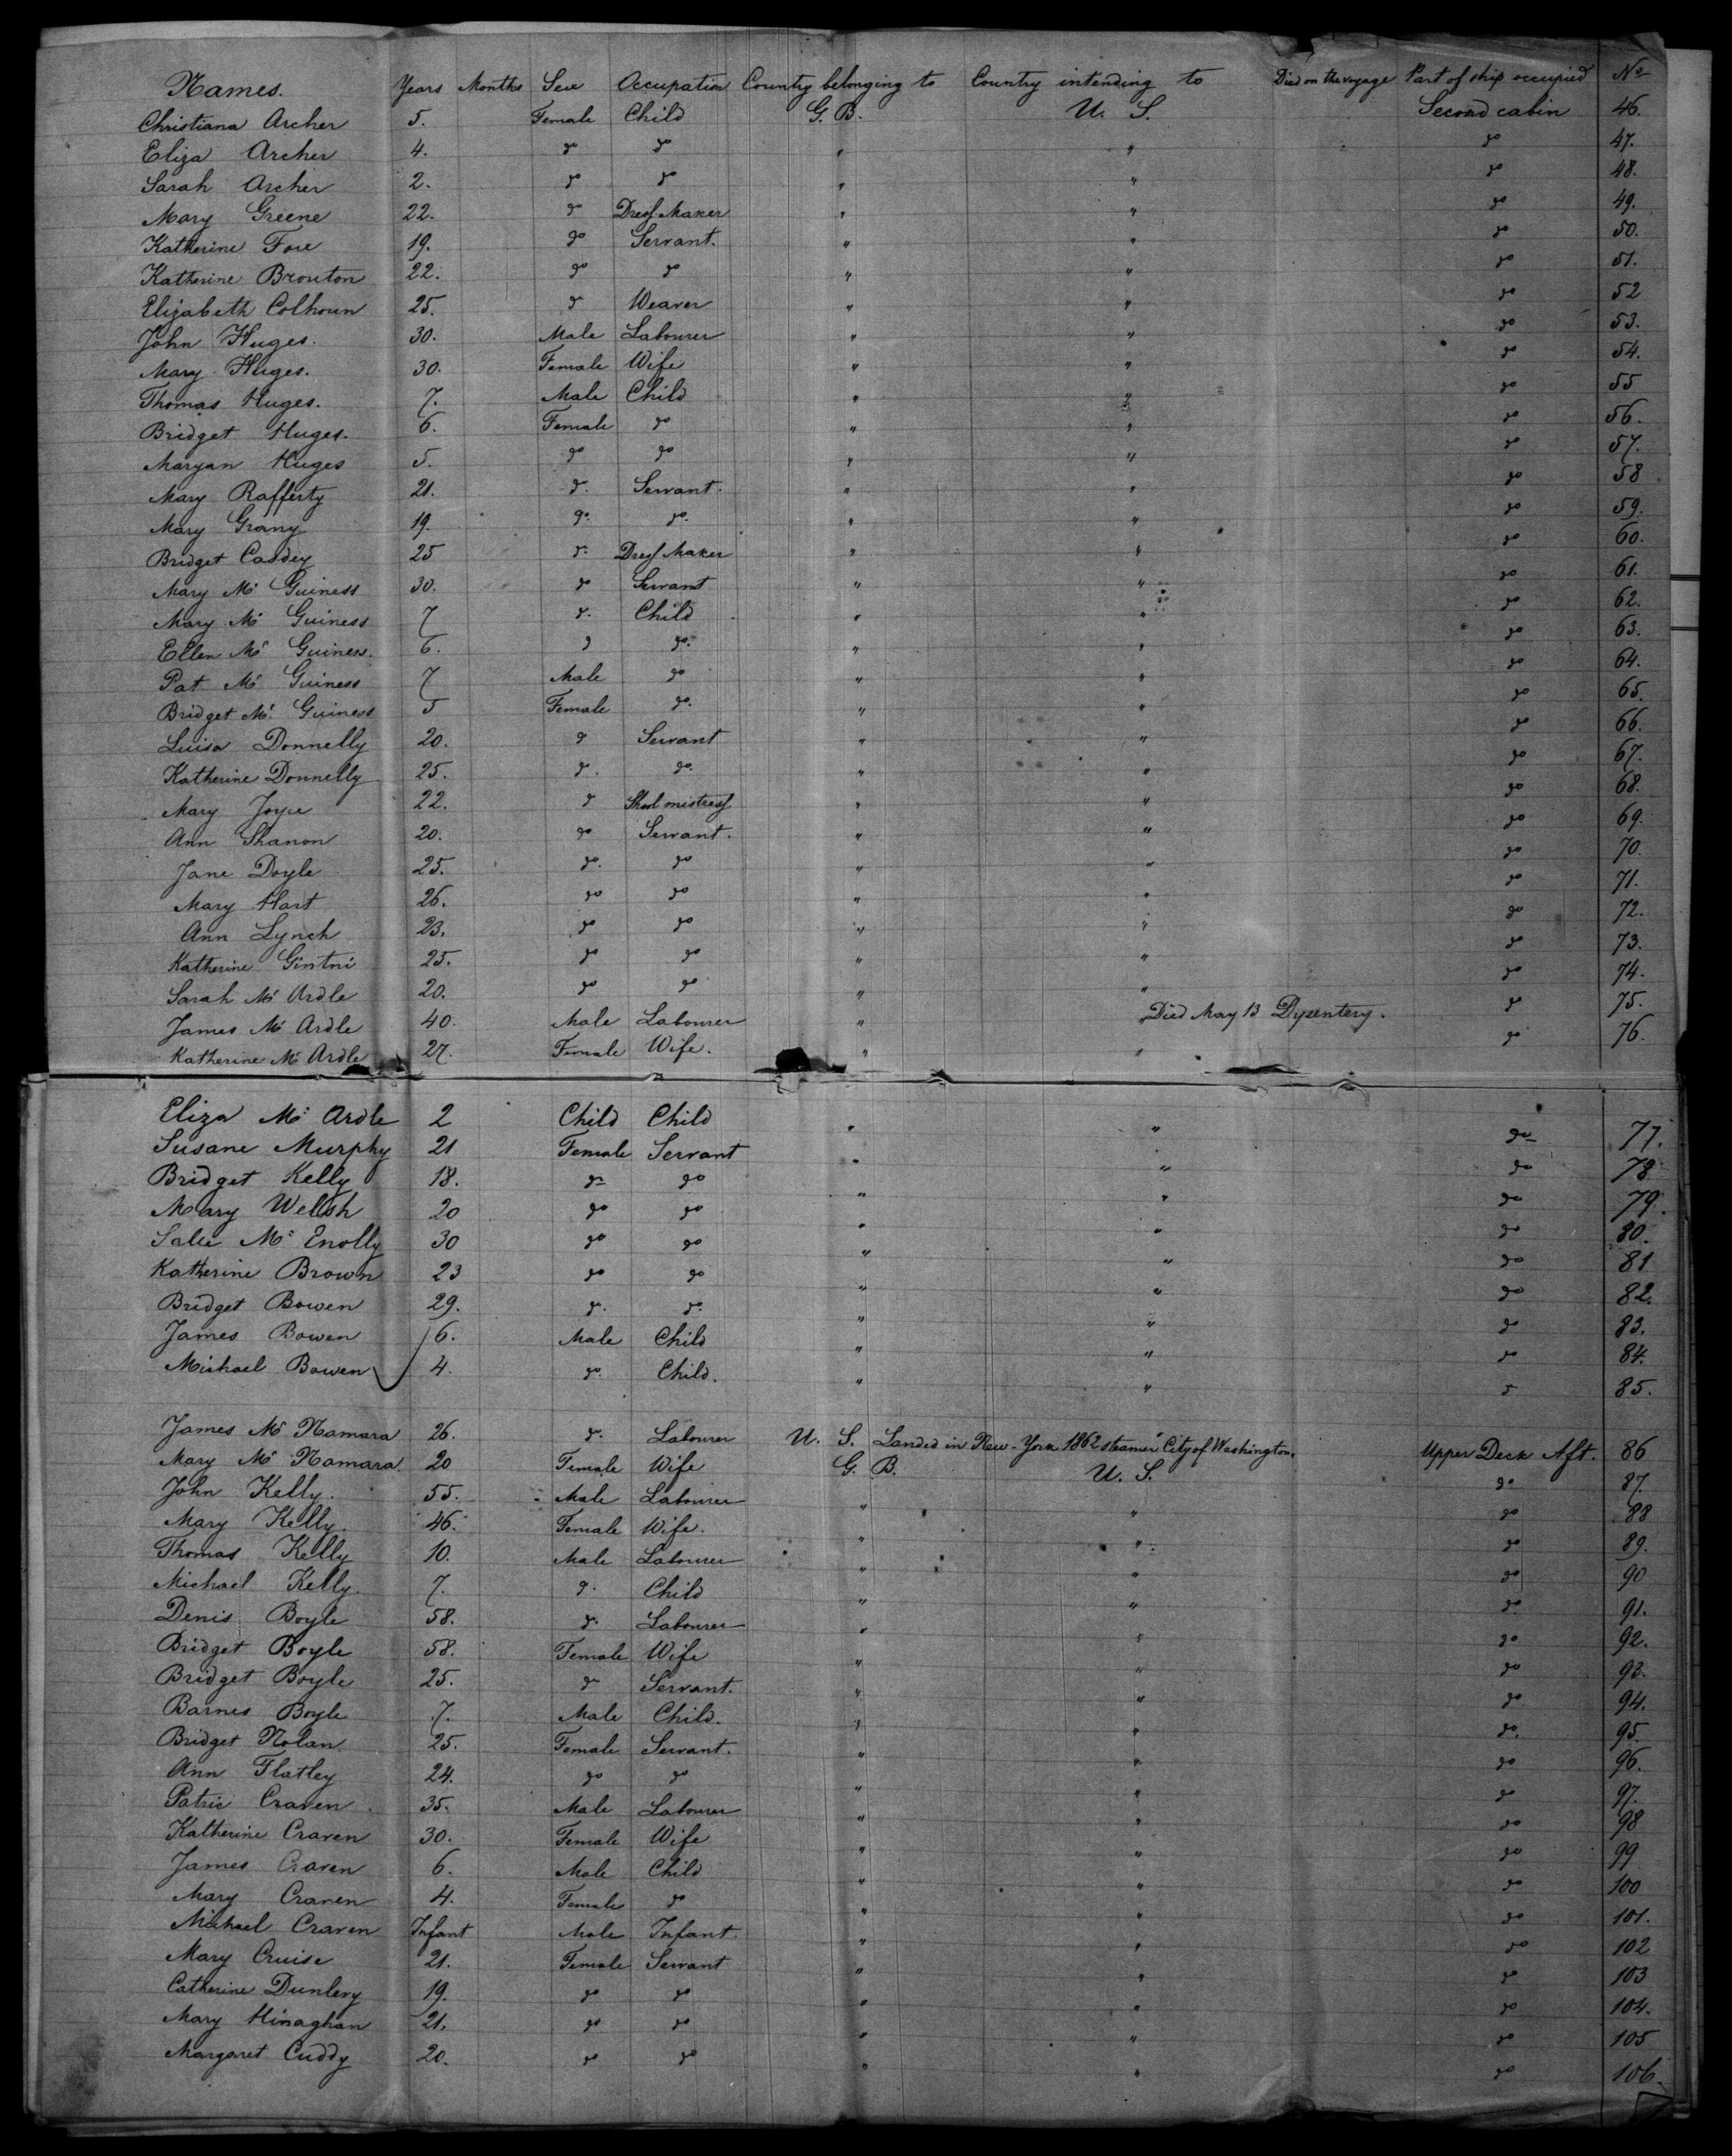 Names. Years Months Sex Occupation Country belonging to Country intending to Died on the voyage Part of ship occupied No
Christiana Archer 5. Female Child G. B. U. S. Second cabin 46.
Eliza Archer 4. do do " " do 47.
Sarah Archer 2. do do " " do 48.
Mary Greene 22. do Dress Maker " " do 49.
Katherine Foxe 19. do Servant. " " do 50.
Katherine Brouton 22. do do " " do 51.
Elizabeth Colhoun 25. do Weaver " " do 52
John Huges. 30. Male Labourer " " do 53.
Mary Huges. 30. Female Wife " " do 54.
Thomas Huges. 7. Male Child " " do 55
Bridget Huges. 6. Female do " " do 56.
Maryan Huges 5. do do " " do 57.
Mary Rafferty 21. do. Servant. " " do 58
Mary Grany 19. do. do. " " do 59.
Bridget Caddey 25 do. Dress Maker " " do 60.
Mary Mc Guiness 30. do Servant " " do 61.
Mary Mc Guiness 7 do. Child " " do 62.
Ellen Mc Guiness. 6. do do. " " do 63.
Pat Mc Guiness 7 Male do " " do 64.
Bridget Mc Guiness 5 Female do. " " do 65.
Luisa Donnelly 20. do Servant " " do 66.
Katherine Donnelly 25. do. do. " " do 67.
Mary Joyce 22. do Shool mistress " " do 68.
Ann Shanon 20. do Servant. " " do 69.
Jane Doyle 25. do. do " " do 70.
Mary Hart 26. do do " " do 71.
Ann Lynch 23. do do " " do 72.
Katherine Gintni 25. do do " " do 73.
Sarah Mc Ardle 20. do do " " do 74.
James Mc Ardle 40. Male Labourer " " Died May 13 Dysentery. do 75.
Katherine Mc Ardle 27. Female Wife. " " do 76.
Eliza Mc Ardle 2 Child Child " " do 77.
Susane Murphy 21 Female Servant " " do 78
Bridget Kelly 18. do do " " do 79.
Mary Wellsh 20 do do " " do 80.
Salie Mc Enolly 30 do do " " do 81
Katherine Brown 23 do do " " do 82.
Bridget Bowen 29. do. do. " " do 83.
James Bowen 6. Male Child " " do 84.
Michael Bowen 4. do. Child. " " do 85.
James Mc Namara 26. do. Labourer U. S. Landed in New-York 1862 steamer "City of Washington" Upper Deck Aft. 86
Mary Mc Namara. 20 Female Wife G. B. U. S. do 87.
John Kelly. 55. Male Labourer " " do 88
Mary Kelly. 46. Female Wife. " " do 89.
Thomas Kelly 10. Male Labourer " " do 90
Michael Kelly. 7. do. Child " " do. 91.
Denis Boyle 58. do. Labourer " " do 92.
Bridget Boyle 58. Female Wife " " do 93.
Bridget Boyle 25. do Servant. " " do 94.
Barnes Boyle 7. Male Child. " " do. 95.
Bridget Nolan 25. Female Servant. " " do 96.
Ann Flatley 24. do do " " do 97.
Patric Craven. 35. Male Labourer " " do 98
Katherine Craven 30. Female Wife " " do 99
James Craven 6. Male Child " " do 100
Mary Craven 4. Female do " " do 101.
Michael Craven Infant Male Infant. " " do 102
Mary Cruise 21. Female Servant " " do 103
Catherine Dunlevy 19. do do " " do 104.
Mary Hinaghan 21. do do " " do 105
Margaret Cuddy 20. do do " " do 106.